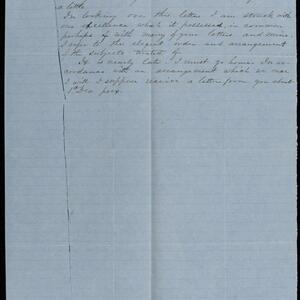 a little.
In looking over this letter I am struck with
one excellence which it possesses, in common
perhaps with many of your letters and mine.
I refer to the elegant order and arrangement
of the subjects treated of.
It is nearly late. I must go home. In ac-
cordance with an arrangement which we made
I will I suppose receive a letter from you about
1st Dec prox.